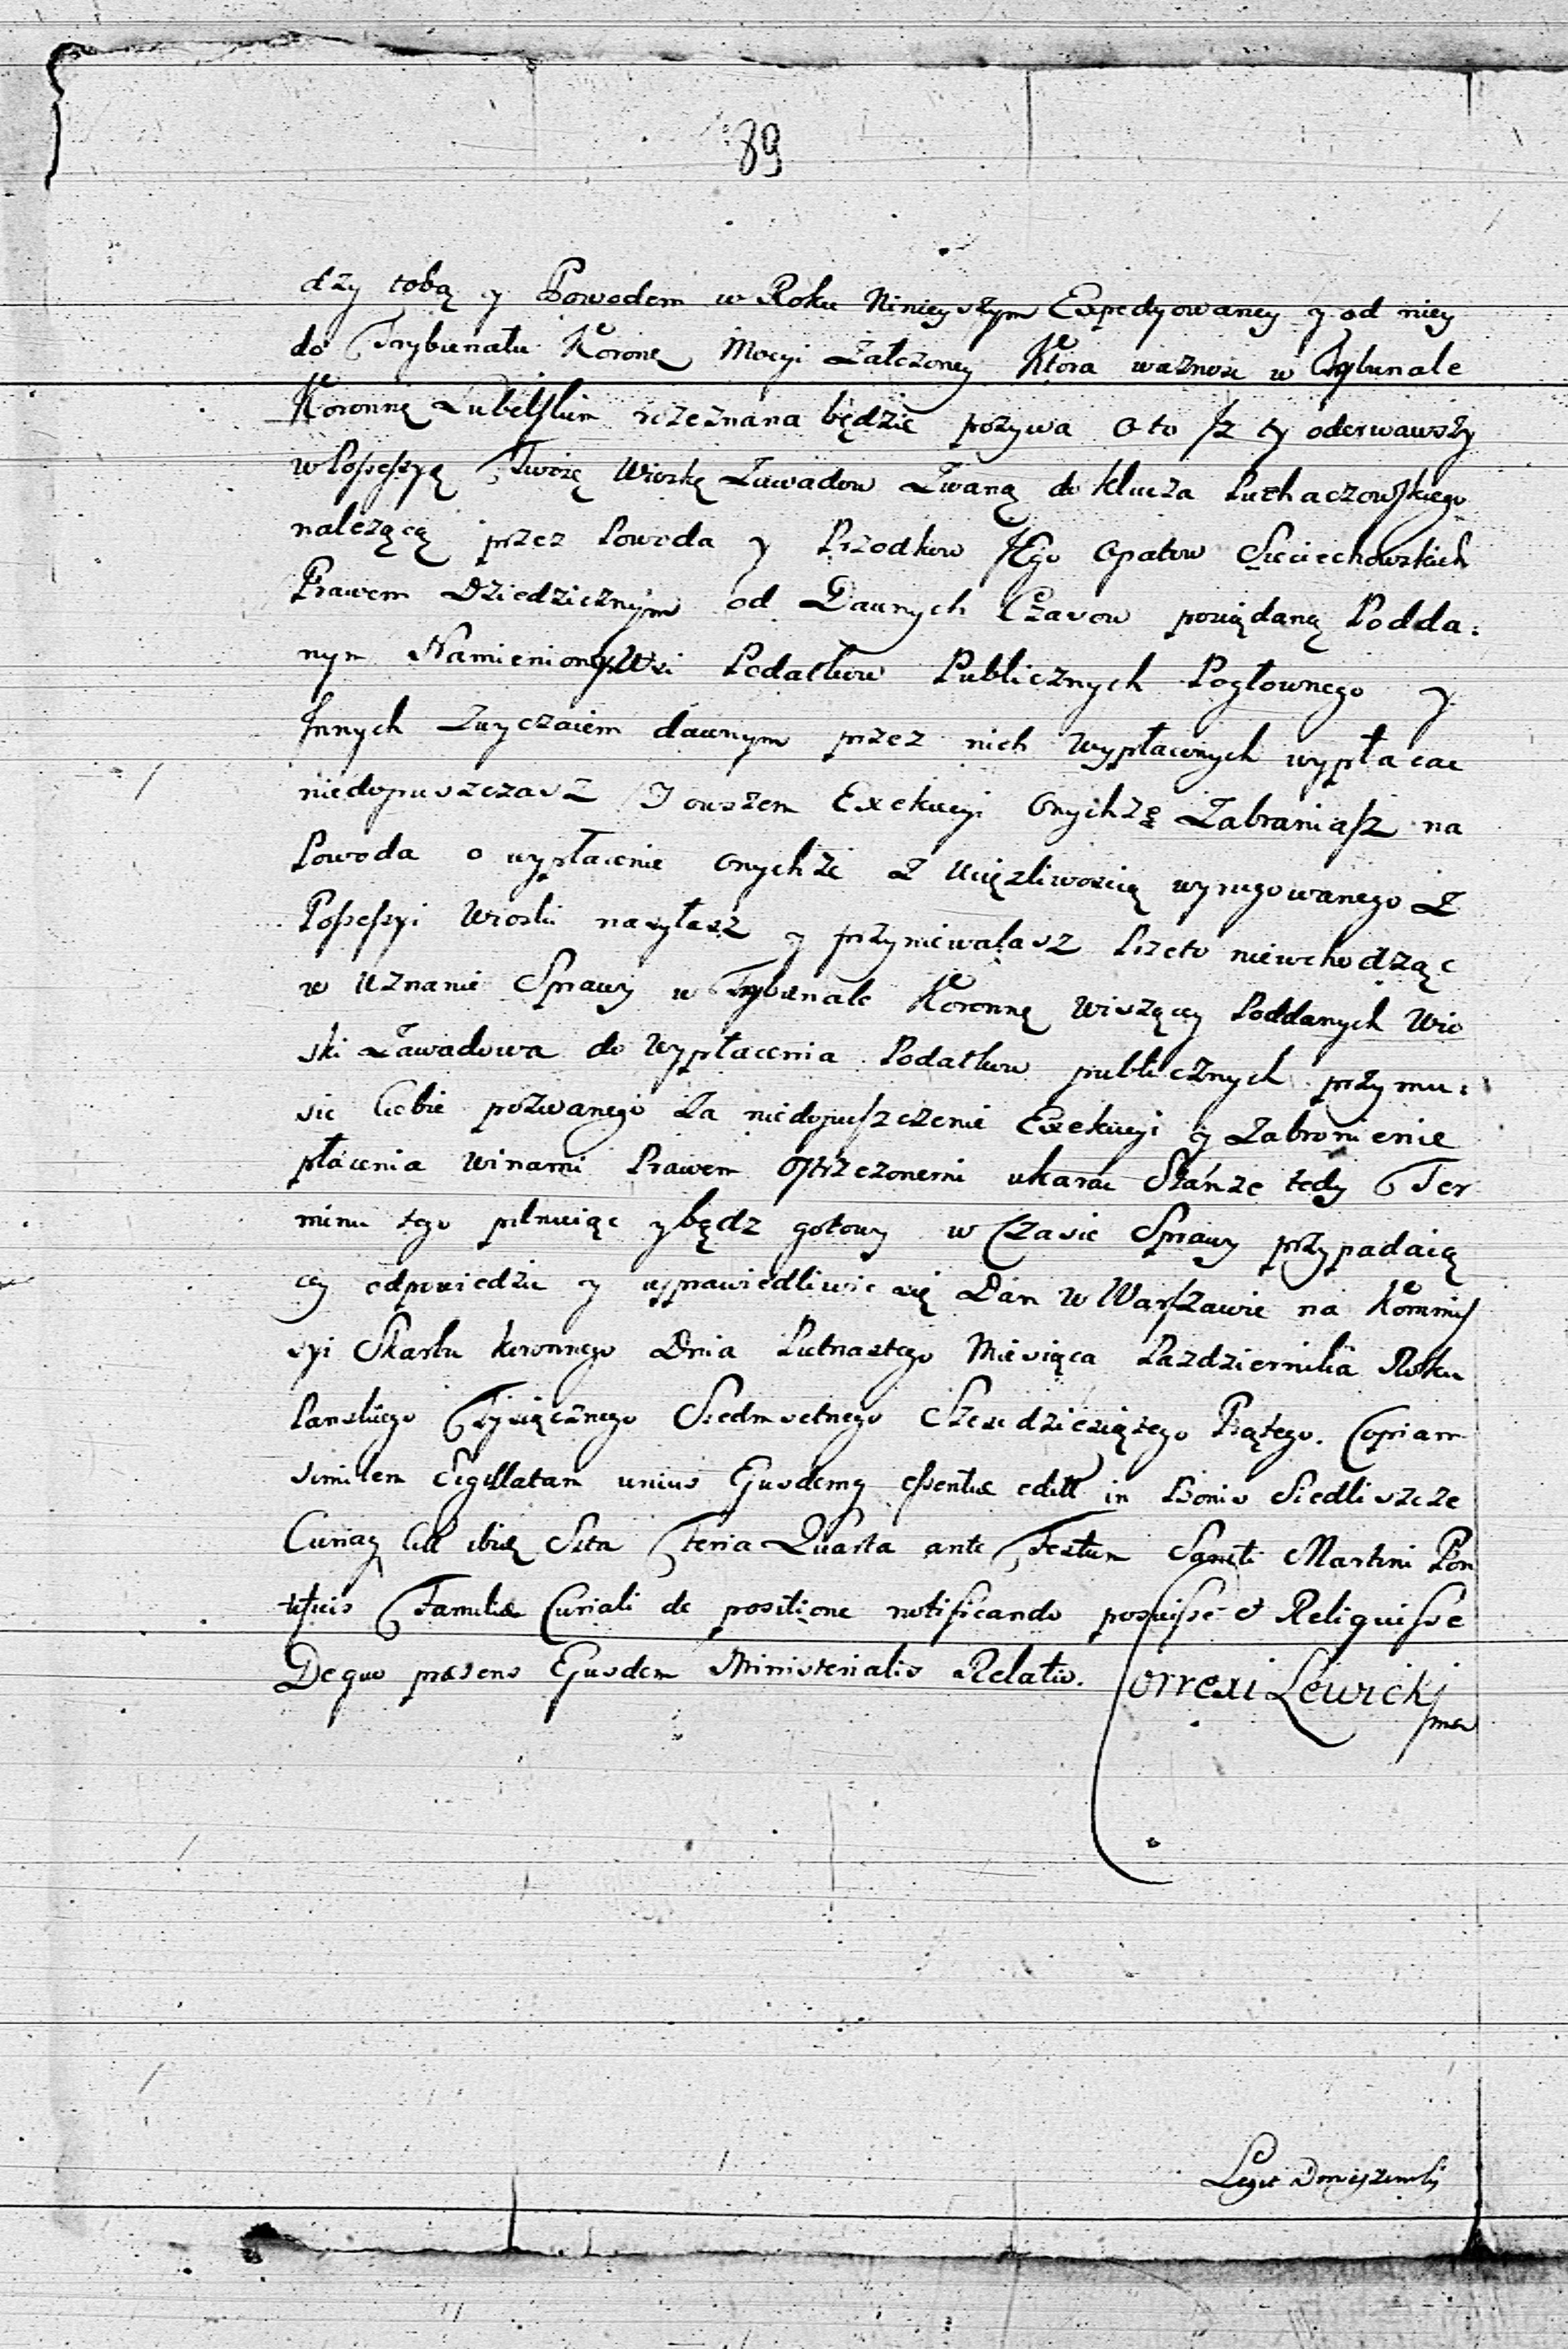 89
dzy tobą y Powodem w Roku Ninieyszym Expedyowaney y od niey
do Trybunału Koronę Mocyi Załczoney Ktora waznosc w Trybunale
Koronnę Lubelskim rzeznana będzie pozywa o to Jz ty oderwawszy
w Possessyą Twoię Wioskę Zawadow Zwaną do klucza Puchaczowskiego
nalezącą przez Powoda y Przodkow JEgo Opatow Sieciechowskich
Prawem Dziedzicznym od Dawnych Czasow posiądaną Podda:
nym Namienioney Wsi Podatkow Publicznych Pogłownego y
Jnnych Zwyczaiem dawnym przez nich Wypłaconych wypłacac
niedopuszczasz Jowszem Exekucyi Onychże Zabraniasz na
Powoda o wypłacenie Onychze z Uciązliwoscią wyrugowanego z
Possessyi Wioski nasyłasz y przyniewalasz Przeto niewchodząc
w Uznanie Sprawy w Trybunale Koronnę Wiszącey Poddanych Wio
ski Zawadowa do Wypłacenia Podatkow publicznych przymu:
sic Ciebie pozwanego Za niedopuszczenie Exekucyi y Zabronienie
płacenia Winami Prawem Ostrzezonemi ukarac Stanze tedy Ter
minu tego pilnuiąc y bądz gotowy w Czasie Sprawy przypadaią
cey odpowiedziec y usprawiedliwic się Dan w Warszawie na Kommis
syi Skarbu koronnego Dnia Pietnastego Miesiąca Pazdziernika Roku
Panskiego Tysiącznego Siedmsetnego Szescdziesiątego Piątego. Copiam
similem Sigillatam unius Ejusdemq essentiæ editt in Bonis Siedliszcze
Curiaq ibiq Sita Feria Quarta ante Festum Sancti Martini Pon
tificis Familiæ Curiali de positione notificando posuisse & Reliquisse
De quo præsens Ejusdem Ministerialis Relatio. Correxi Lewickj
mp
Legit